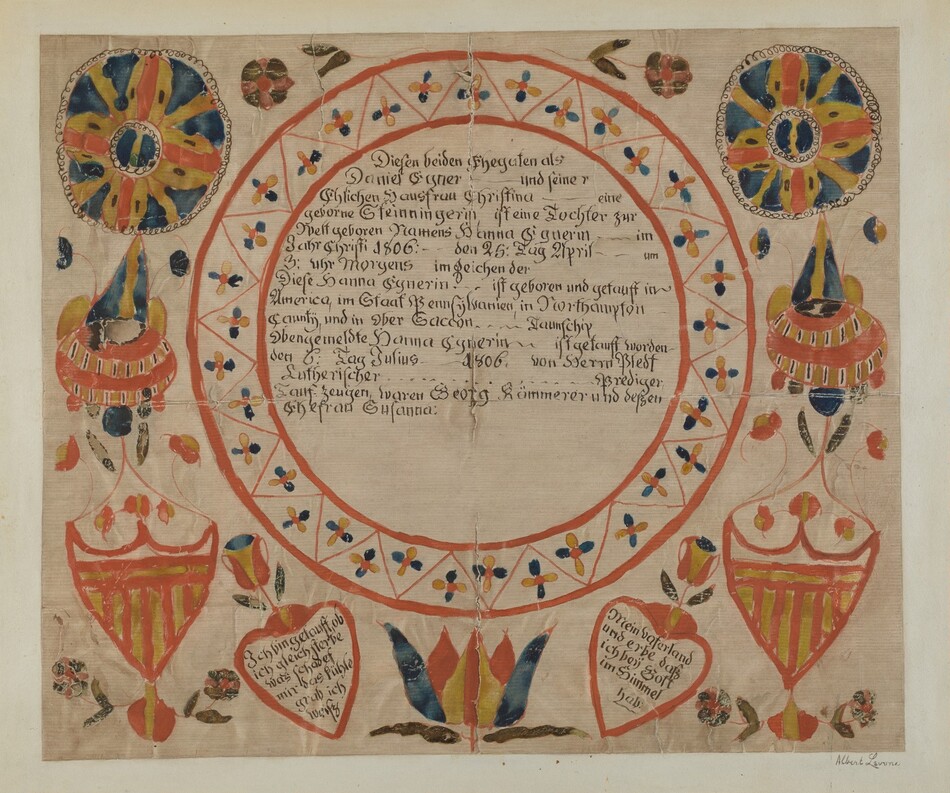 Diesen beiden Ehegaten als
Daniel Egner und seiner
Ehlichen Hausfrau Christina eine
geborne Steinningerin, ist eine Tochter zur
Welt geboren Namens Hanna Egnerin im
Jahr Christi 1806. den 25. Tag April um
3. uhr Morgens im Zeichen der
Diese Hanna Egnerin ist geboren und getauft in
America, im Staat Pennsylvanien, in Northampton
Caunty, und in Ober Saccon Taunschip
Obengemeldte Hanna Egnerin ist getauft worden
den 6. Tag Julius 1806. von Herrn
Lutherischer Prediger
Tauf-Zeugen, waren Georg Kömmerer und deßen
Ehefrau Susanna:
Ich bin getauft, ob
ich gleich sterbe
was schadet
mir das kühle
grab ich
weiß
Mein vaterland
und erbe daß
ich bey Gott
im Himmel
hab.
Albert Levone